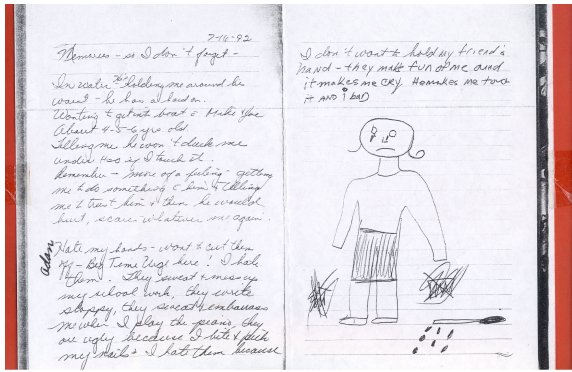 7-16-92
Memories - so I don't forget -
In water holding me around his
waist - he has a hard on.
Wanting to get in boat c Mike
About 4-5-6 yrs old
Telling me he won't dunk me
under H2O if I touch it.
Remember - more of a feeling - getting
me to do something c him & telling
me to trust him & then he would
hurt, scare whatever me again.
Hate my hands - want to cut them
off - Big Time Urge here! I hate
them. They sweat & mess up
my school work, they write
sloppy, they sweat & embarrass
me when I play the piano, they
are ugly because I bite & pick
my nails & I hate them because
I don't want to hold my friend's
hand - they make fun of me and
it makes me cry. He makes me touch
it AND i bad